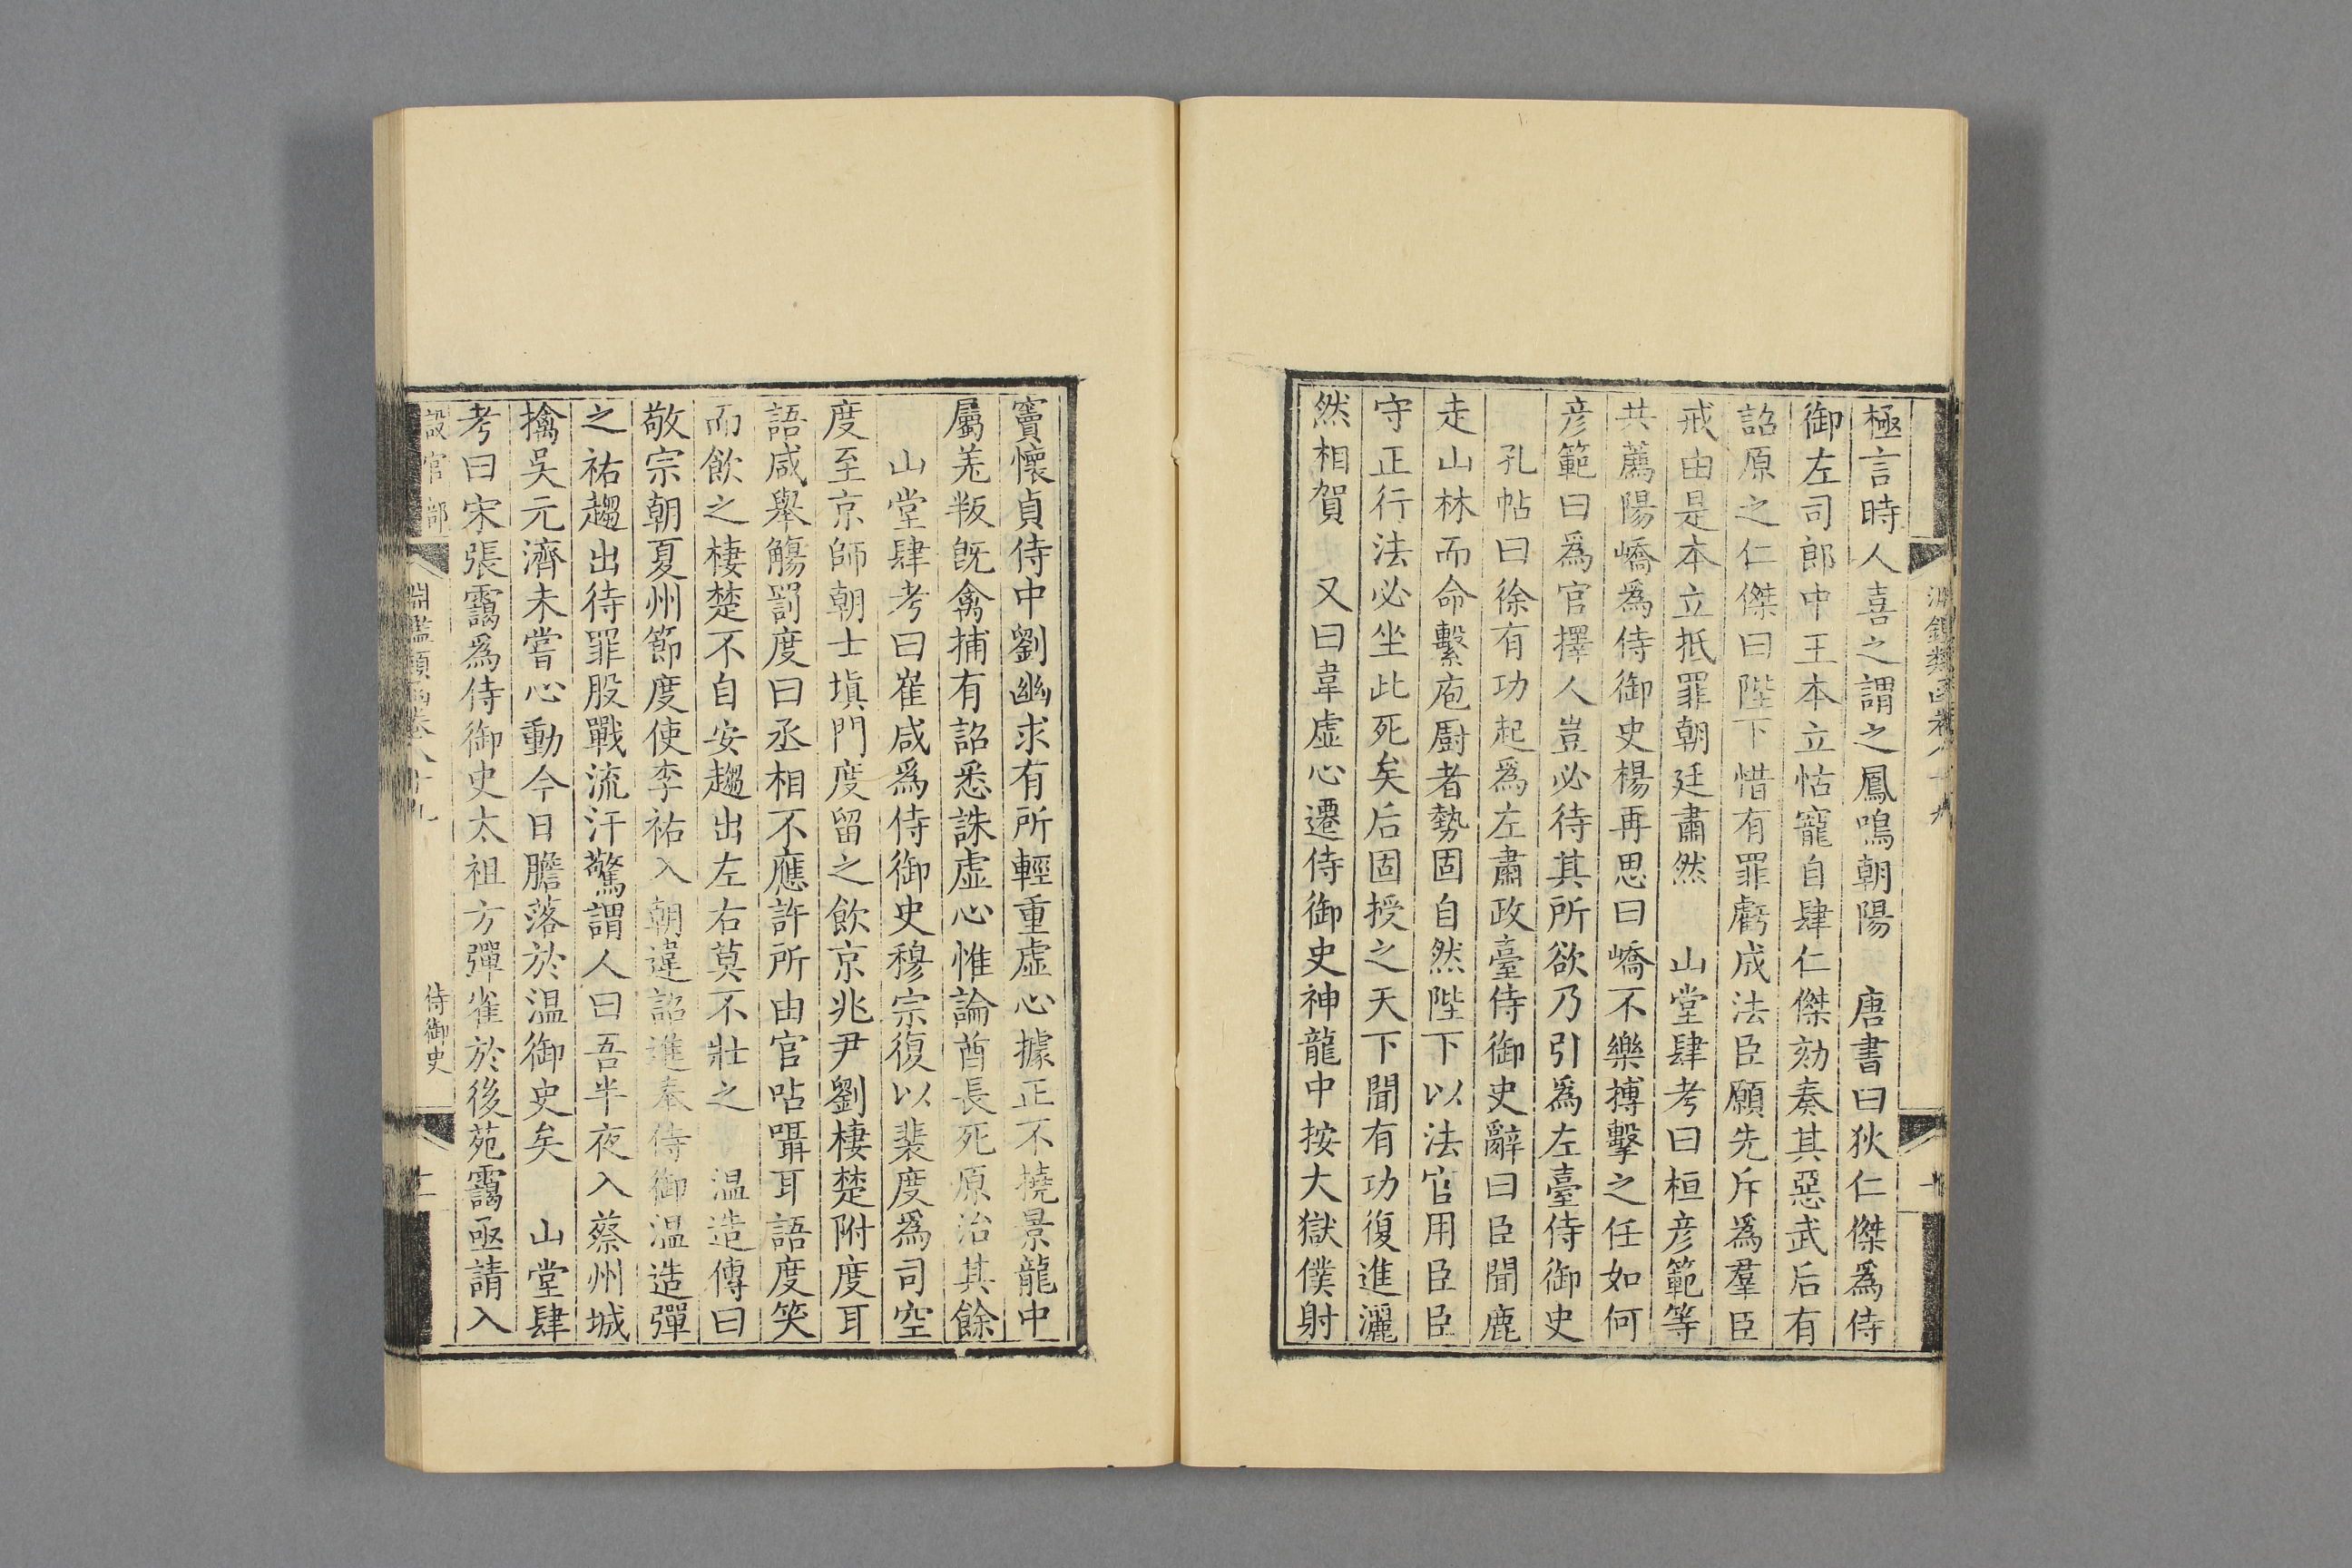 極言時人喜之謂之鳳鳴朝陽　唐書曰狄仁傑爲侍
御左司郎中王本立怙寵自肆仁傑劾奏其惡武后有
詔原之仁傑曰陛下惜有罪虧成法臣願先斥爲羣臣
戒由是本立抵罪朝廷肅然　山堂肆考曰桓彦範等
共薦陽嶠爲侍御史楊再思曰嶠不樂搏擊之任如何
彦範曰爲官擇人豈必待其所欲乃引爲左臺侍御史
孔帖曰徐有功起爲左肅政臺侍御史辭曰臣聞鹿
走山林而命繫庖厨者勢固自然陛下以法官用臣臣
守正行法必坐此死矣后固授之天下聞有功復進灑
然相賀　又曰韋虚心遷侍御史神龍中按大獄僕射
竇懷貞侍中劉幽求有所輕重虚心據正不撓景龍中
屬羌叛旣禽捕有詔悉誅虚心惟論酋長死原治其餘
山堂肆考曰崔咸爲侍御史穆宗復以裴度爲司空
度至京師朝士塡門度留之飲京兆尹劉棲楚附度耳
語咸舉觴罰度曰丞相不應許所由官呫囁耳語度笑
而飲之棲楚不自安趨出左右莫不壯之　温造傳曰
敬宗朝夏州節度使李祐入朝違詔進奉侍御温造彈
之祐趨出待罪股戰流汗驚謂人曰吾半夜入蔡州城
擒吳元濟未嘗心動今日膽落於温御史矣　山堂肆
考曰宋張靄爲侍御史太祖方彈雀於後苑靄亟請入
設官部　淵鑑類函卷八十九　侍御史